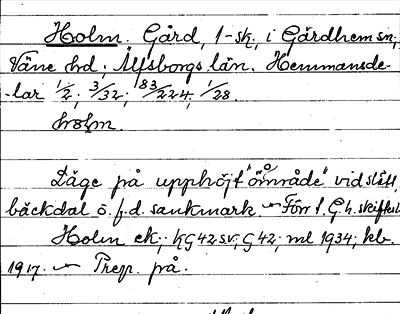 Holm. Gård, 1-sk., i Gärdhem sn,
Väne hd, Älfsborgs län. Hemmansde-
lar 1/2, 3/32, 83/224, 1/28.
hɷlm.
Läge på upphöjt "område" vid slätt,
bäckdal o. f.d. sankmark. ~ Förr f. G. h. skiftesl.
Holm ek., KG 42 sv, G 42, ml 1934, kb.
1917. ~ Prep. på.